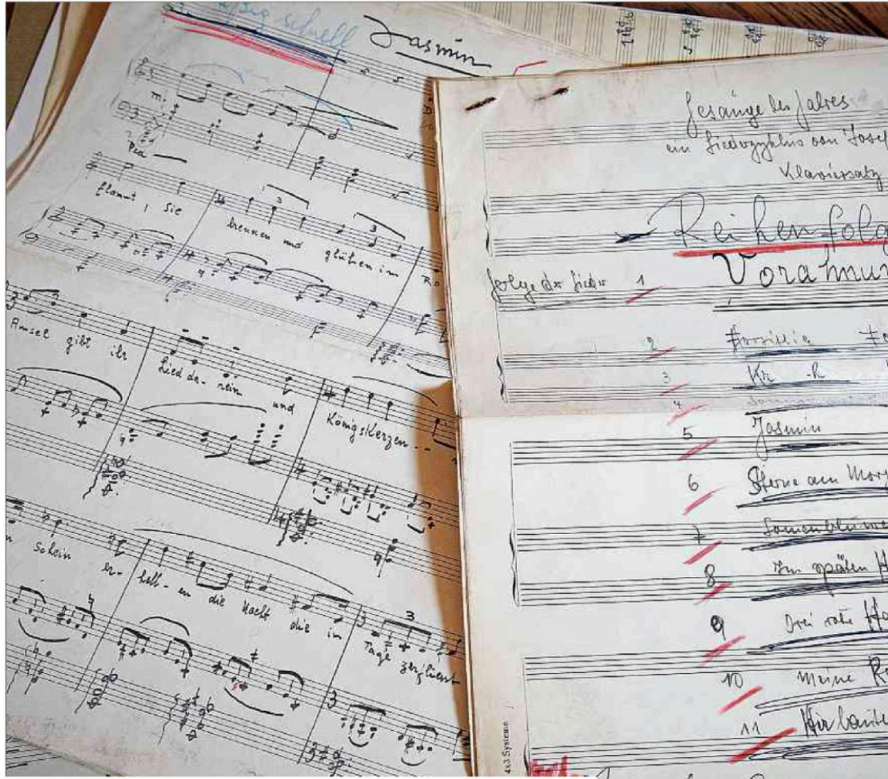 schnell
Jasmin
flammt, Sie
brennen und glühen im Ro
Amsel gibt ihr Lied da-rein und Königskerzen - -
Schein er-hell-en die Nacht die im Tage zerfliesst
Gesänge des Jahres
ein Liederzyklus von Josef
Klaviersatz
Reihenfolg
folge der Lieder 1
2 Forsythia
3
4
5 Jasmin
6 Sterne am Morg
7 Sonnenblume
8 Im späten H
9 Drei rote
10 Meine R
11
4x3 Systeme